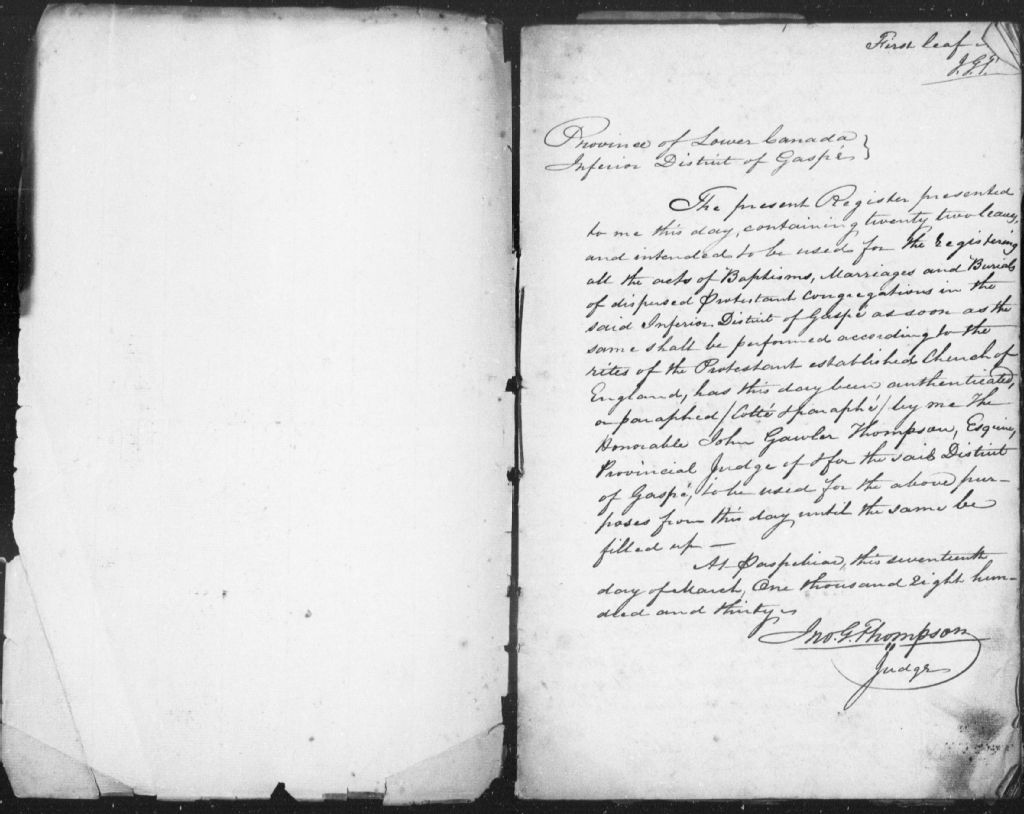 First leaf
J.G.T.
Province of Lower Canada
Inferior District of Gaspé }
The present Register presented
to me this day, containing twenty two leaves,
and intended to be used for the registering
all the acts of Baptisms, Marriages and Burials
of dispersed Protestant congregations in the
said Inferior District of Gaspé as soon as the
same shall be performed according to the
rites of the Protestant established Church of
England, has this day been authenticated,
or paraphed /Cotté & paraphé/ by me The
Honorable John Gawler Thompson, Esquire,
Provincial Judge of & for the said District
of Gaspé, to be used for the above pur-
poses from this day until the same be
filled up —
At Paspebiac, this seventeenth
day of March, One thousand Eight hun-
dred and thirty
Jno. G. Thompson
Judge